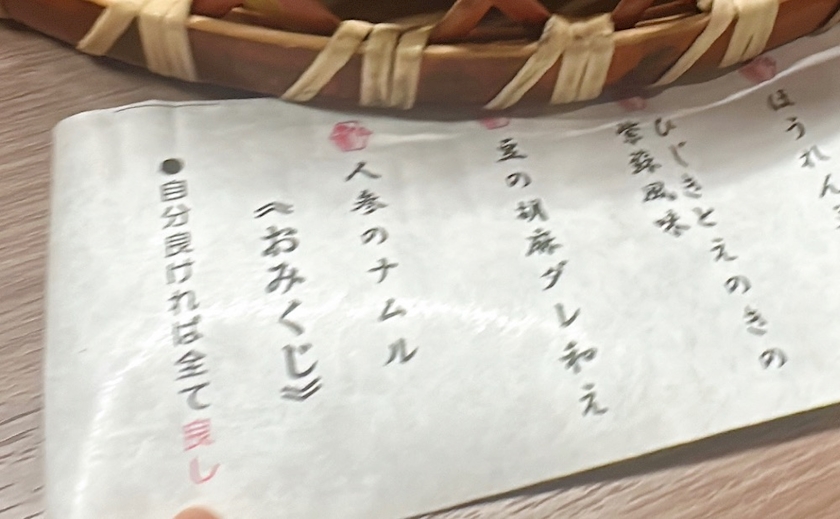 ほうれん
ひじきとえのきの
紫蘇風味
豆の胡麻ダレ和え
人参のナムル
《おみくじ》
●自分良ければ全て良し